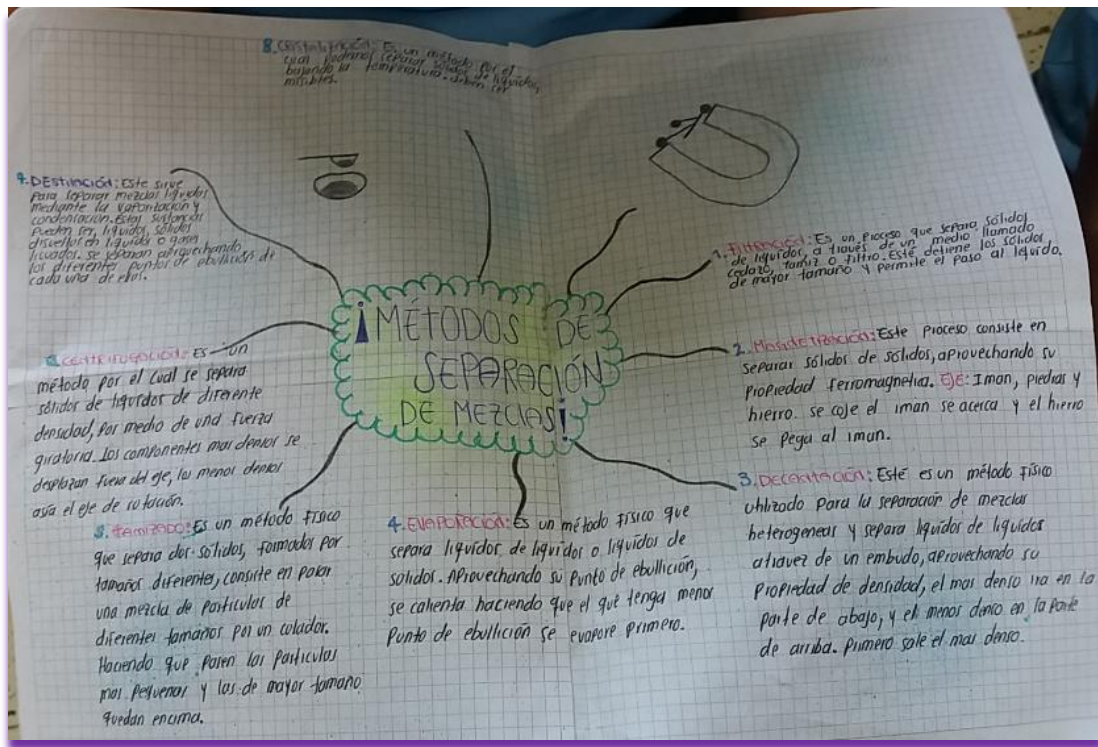 ¡MÉTODOS DE
SEPARACIÓN
DE MEZCLAS!
1. Filtración: Es un proceso que separa sólidos
de líquidos, a través de un medio llamado
cedazo, tamiz o filtro. Esté detiene los sólidos
de mayor tamaño y permite el paso al líquido.
2. Magnetización: Este proceso consiste en
separar sólidos de solidos, aprovechando su
propiedad ferromagnetica. EJE: Iman, piedras y
hierro. se coje el iman se acerca y el hierro
se pega al iman.
3. Decantación: Esté es un método físico
utilizado para la separación de mezclas
heterogeneas y separa líquidos de líquidos
atravez de un embudo, aprovechando su
propiedad de densidad, el mas denso ira en la
parte de abajo, y el menos denso en la parte
de arriba. Primero sale el mas denso.
4. Evaporación: Es un método físico que
separa líquidos de líquidos o líquidos de
solidos. Aprovechando su punto de ebullición,
se calienta haciendo que el que tenga menor
punto de ebullición se evapore primero.
5. tamizado: Es un método físico
que separa dos sólidos, formados por
tamaños diferentes, consiste en pasar
una mezcla de particulas de
diferentes tamaños por un colador.
Haciendo que pasen las particulas
mas pequeñas y las de mayor tamaño
quedan encima.
centrifugación: Es un
método por el cual se separa
sólidos de líquidos de diferente
densidad, por medio de una fuerza
giratoria. Los componentes mas densos se
desplazan fuera del eje, los menos densos
asía el eje de rotación.
7. DEstilación: Este sirve
para separar mezclas líquidas
mediante la vaporitación y
condensación. Estas sustancias
pueden ser, líquidos, sólidos
disueltos en líquidos o gases
licuados. se separan aprovechando
los diferentes puntos de ebullición de
cada una de ellas.
8. Es un método por el
cual podemos separar sólidos de líquidos,
bajando la temperatura. deben ser
misibles.